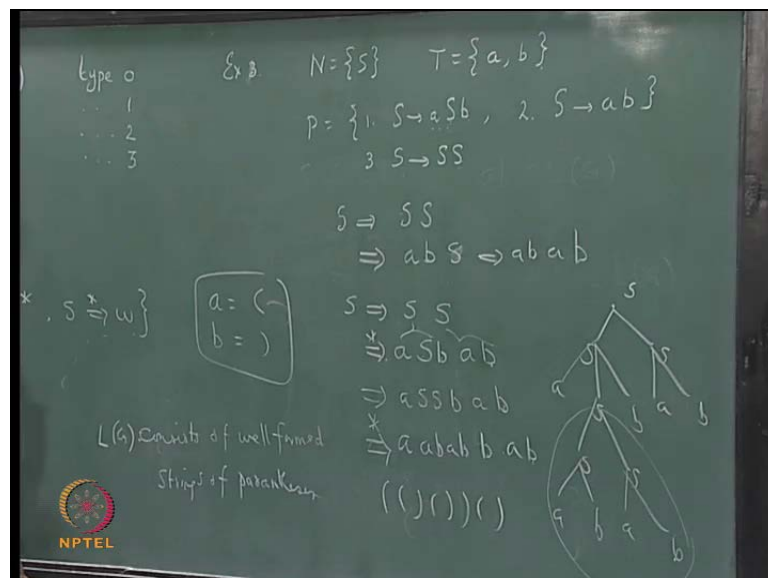 ) type 0
. . . 1
. . . 2
. . . 3
Ex 3. N = {S} T = {a, b}
P = {1. S → aSb, 2. S → ab}
3 S → SS
S ⇒ SS
⇒ abS ⇔ abab
*, S ⇒* w}
a = (
b = )
S ⇒ S S
⇒* aSb ab
⇒ aSSb ab
⇒* aababb.ab
(()())()
L(G) consists of well formed
strings of
S
S S
a S b a b
S S
a b a b
NPTEL